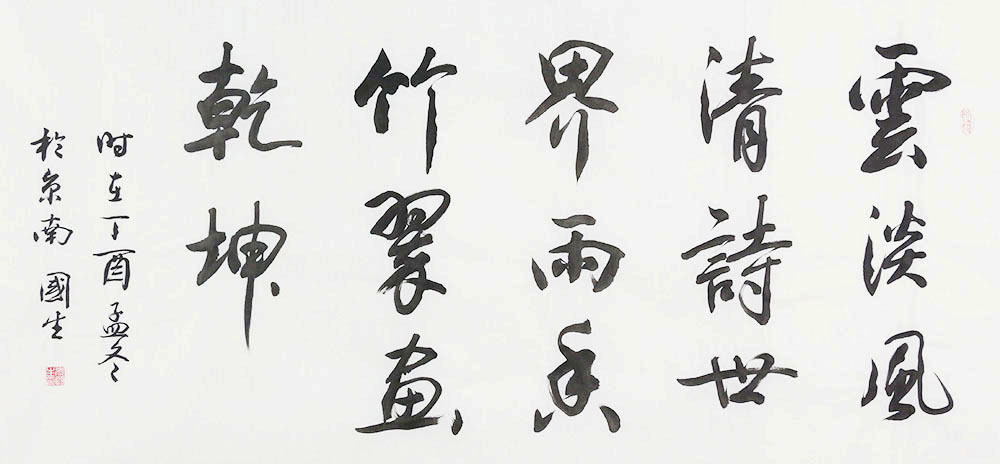 雲淡風
清詩世
界雨香
竹翠畫
乾坤
时在丁酉孟冬
於京南 國生